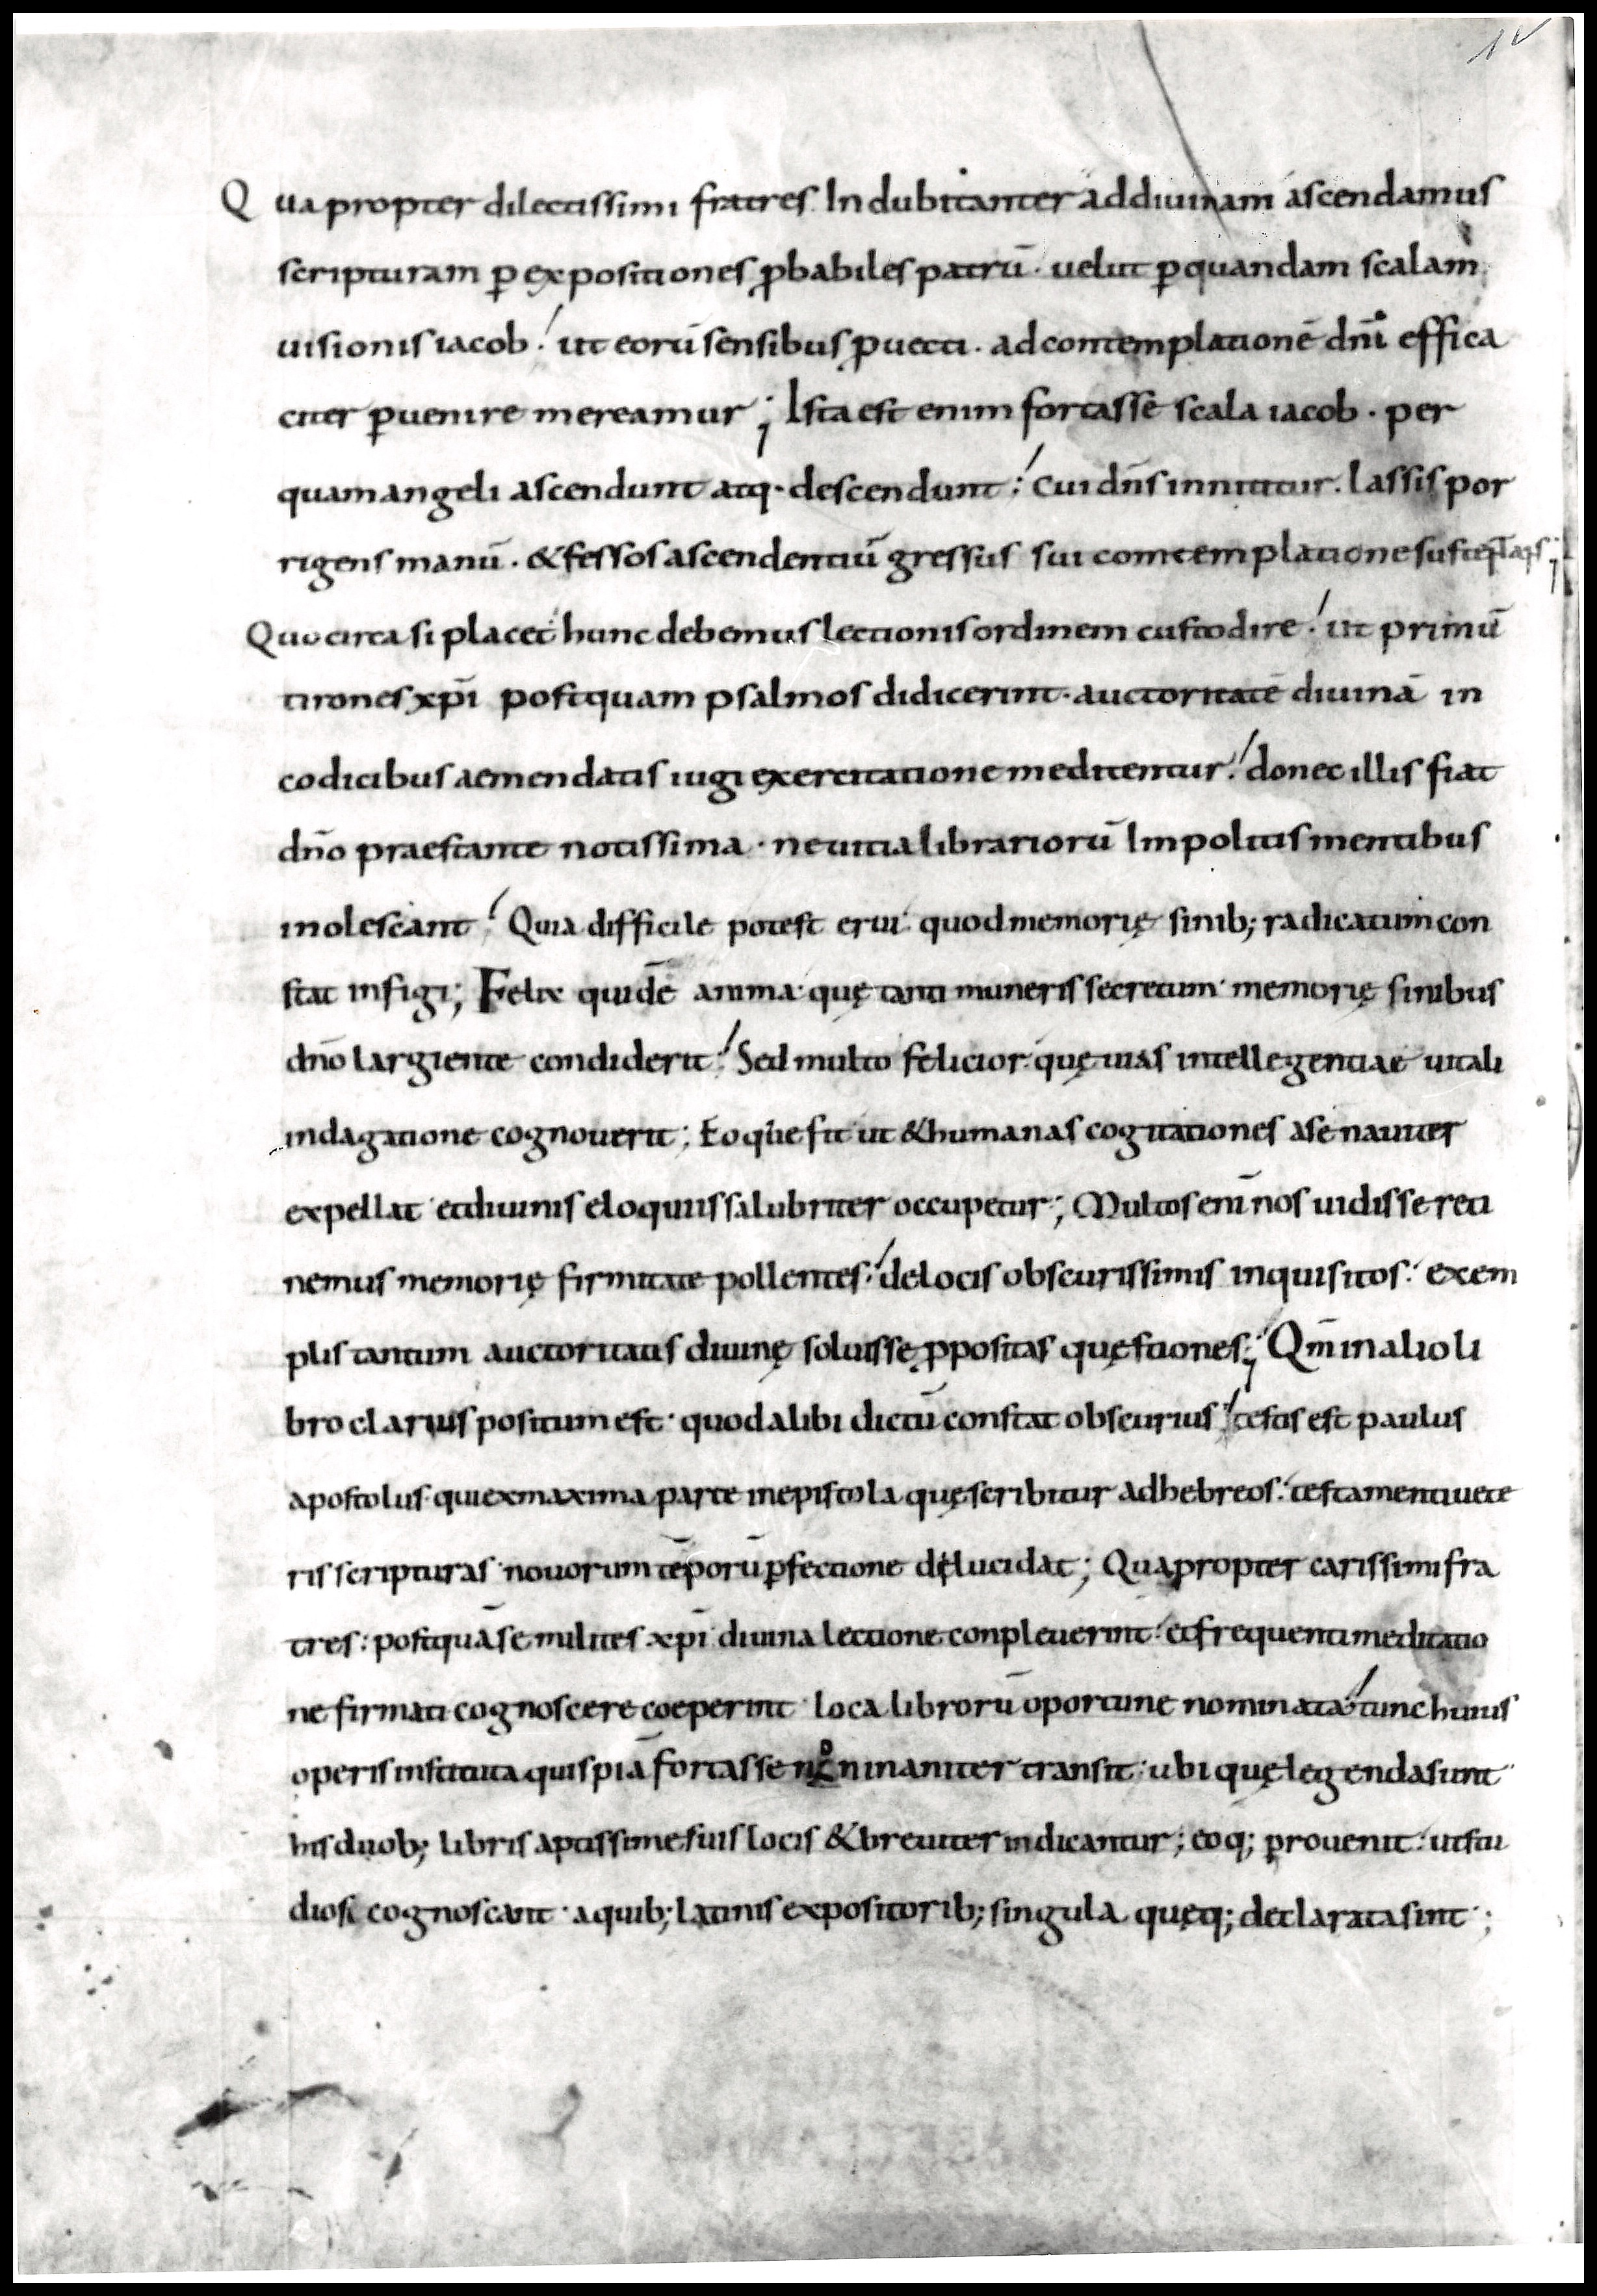 1v
Qua propter dilectissimi fratres Indubitanter ad diuinam ascendamus
scripturam ꝑ expositiones ꝓbabiles patrū · uelut ꝑ quandam scalam
uisionis iacob · ut eorū sensibus ꝓuecti · ad contemplationē dnī effica
citer ꝑuenire mereamur ; Ista est enim fortasse scala iacob · per
quam angeli ascendunt atq· descendunt : cui dn̄s innititur . lassis por
rigens manū · & fessos ascendentiū gressus sui comtemplatione
Quo circa si placet hunc debemus lectionis ordinem custodire ! ut primū
tirones xp̄i postquam psalmos didicerint · auctoritatē diuinā in
codicibus aemendatis iugi exercitatione meditentur ! donec illis fiat
dn̄o praestante notissima · ne uitia librariorū Impolitis mentibus
inolescant ! Quia difficile potest erui · quod memorię sinib; radicatum con
stat infigi ; Felix quidē anima · quę tanti muneris secretum · memorię sinibus
dn̄o largiente condiderit ! Sed multo felicior · quę uias intellegentiae uitali
indagatione cognouerit ; Eoque fit ut & humanas cogitationes a se nauiter
expellat · et diuinis eloquiis salubriter occupetur ; Multos enī nos uidisse reti
nemus memorię firmitate pollentes ! de locis obscurissimis inquisitos : exem
plis tantum auctoritatis diuinę soluisse ꝓpositas quęstiones ; Qm̄ in alio li
bro clarius positum est · quod alibi dictū constat obscurius ! testis est paulus
apostolus · qui ex maxima parte in epistola quę scribitur ad hebreos : testamenti uete
ris scripturas · nouorum tēporū ꝑfectione dęlucidat ; Quapropter carissimi fra
tres : postquā se milites xp̄i diuina lectione conpleuerint : et frequenti meditatio
ne firmati cognoscere coeperint · loca librorū oportune nominata ! tunc huius
operis instituta quispiā fortasse non inaniter transit : ubi quę legenda sunt
his duob; libris aptissime suis locis & breuiter indicantur ; eoq; prouenit : ut stu
diosi cognoscant · a quib; latinis expositorib; singula quęq; declarata sint ;